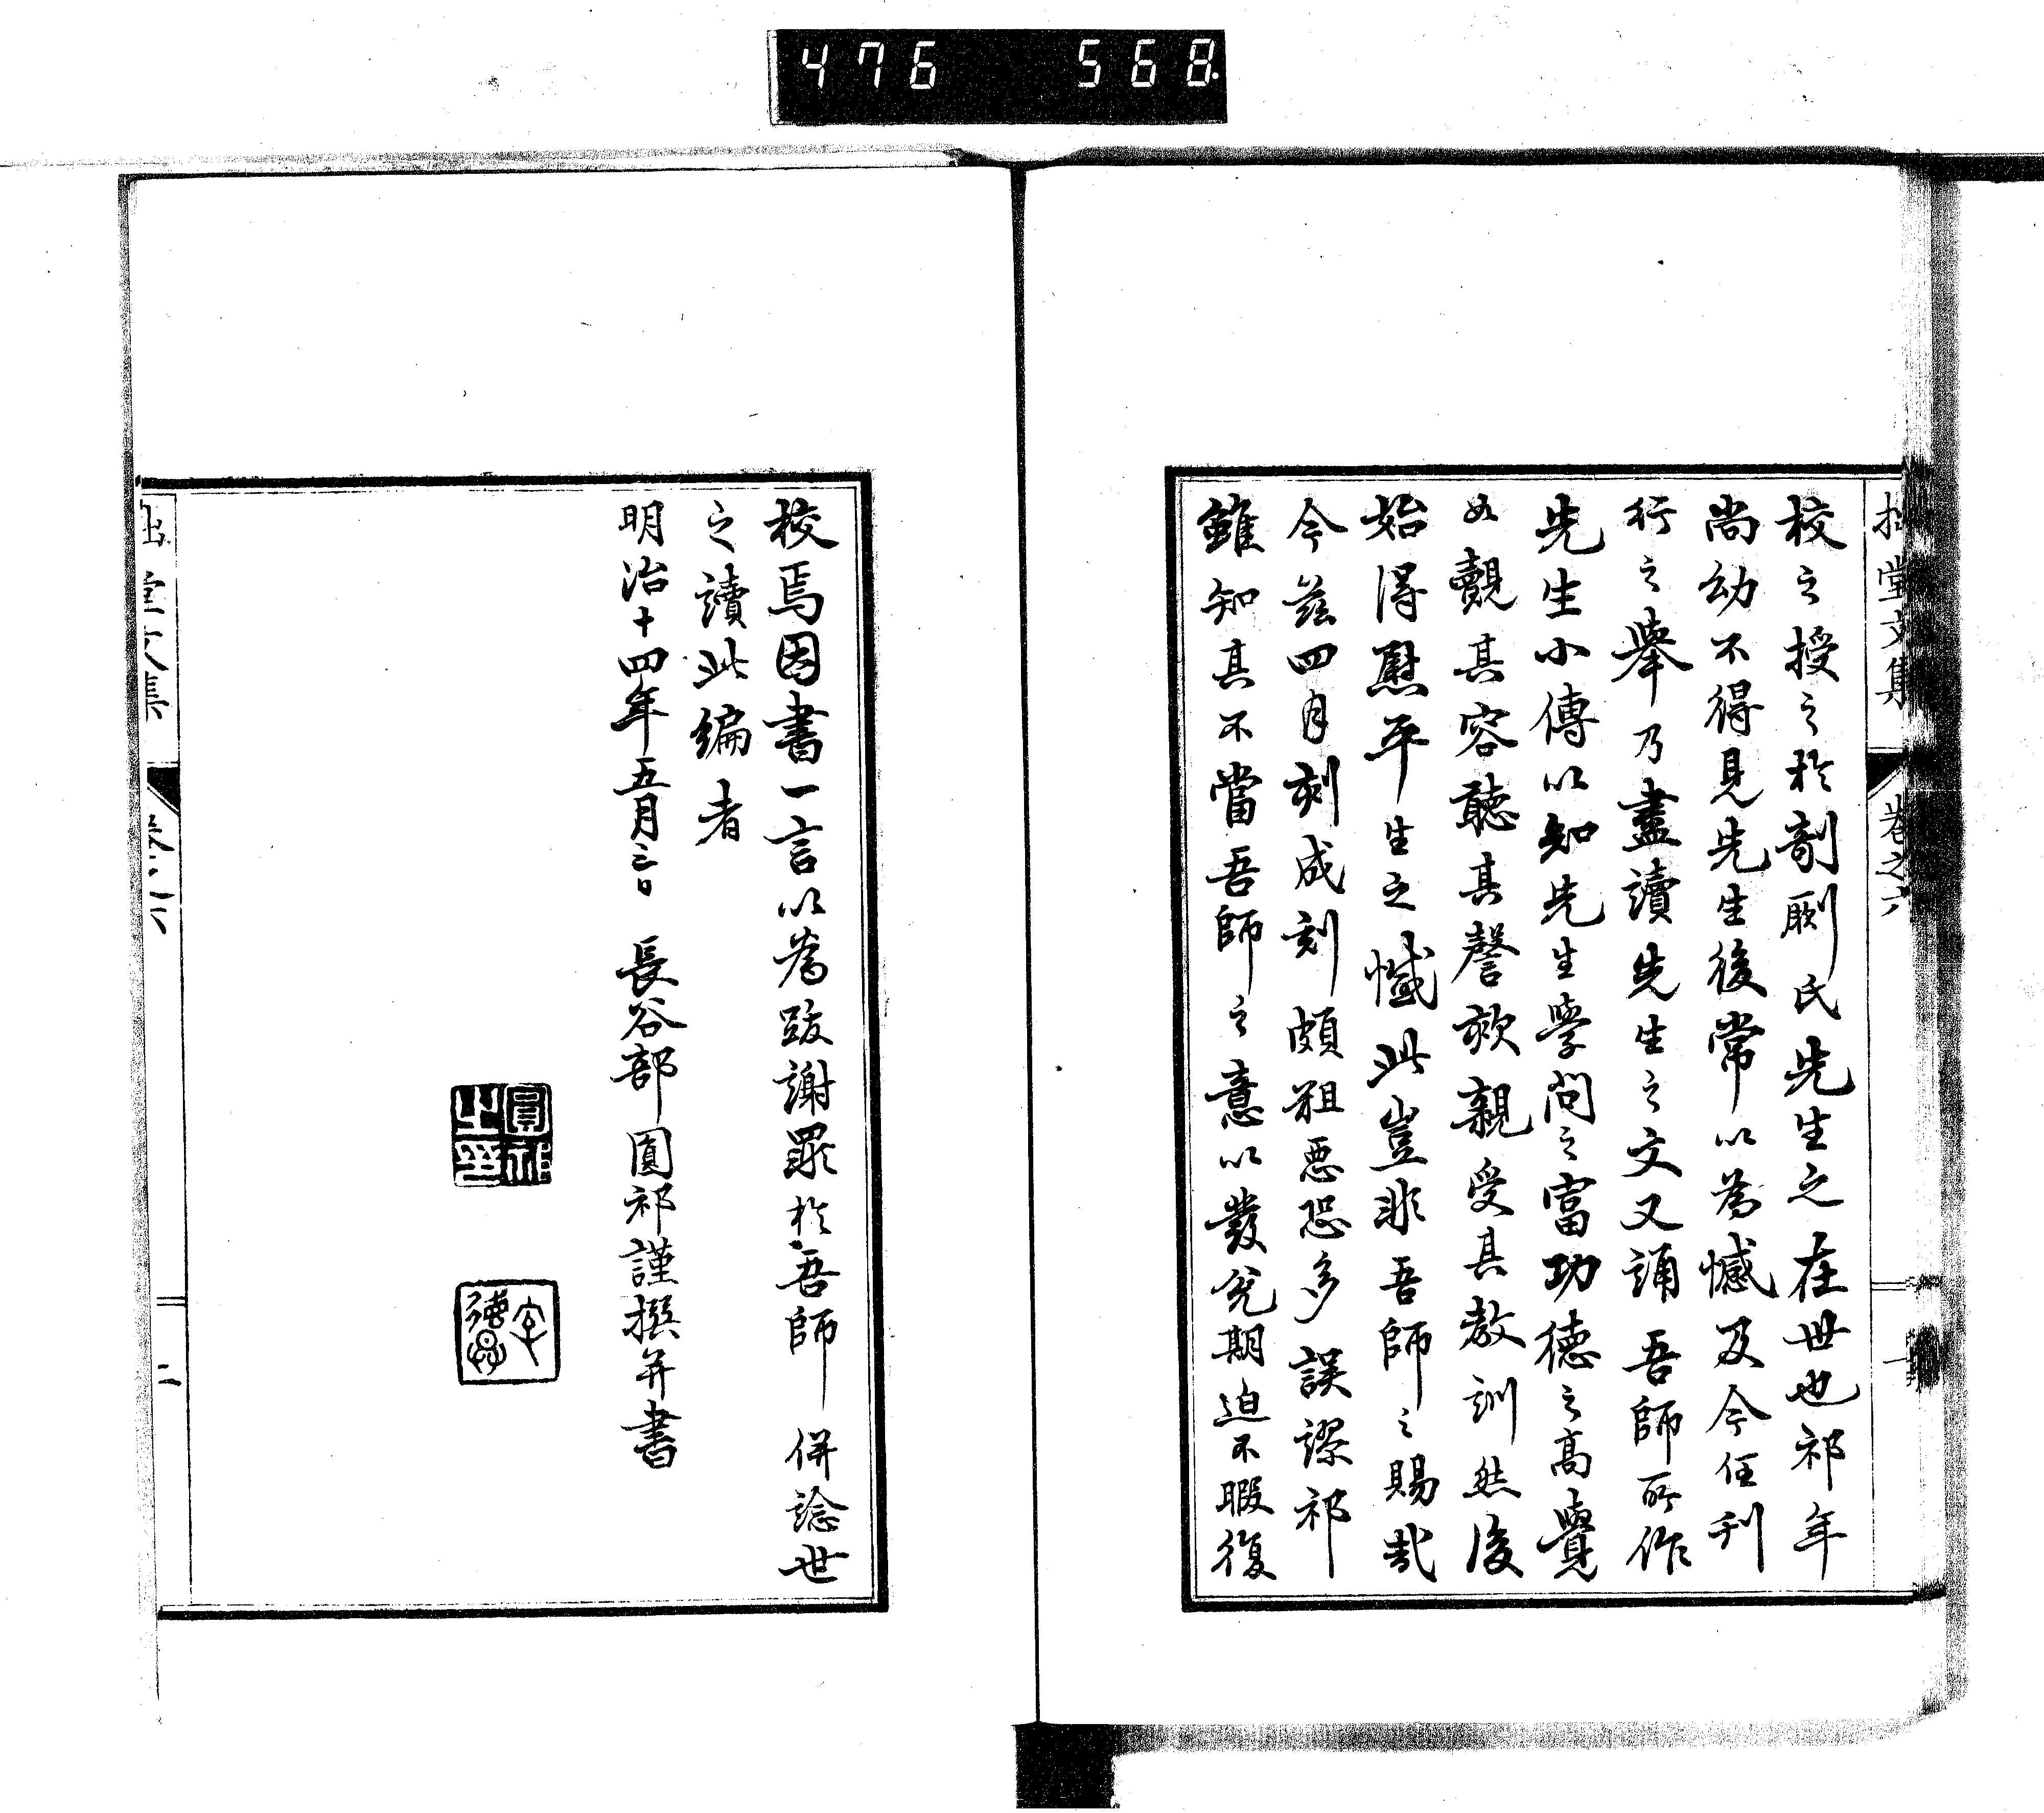 476 568
拙堂文集 卷之六 一
校之授之於剞劂氏先生之在世也祁年
尚幼不得見先生後常以為憾及今任刊
行之舉乃盡讀先生之文又誦吾師所作
先生小傳以知先生學問之富功德之高覺
如覿其容聽其謦欬親受其教訓然後
始得慰平生之憾此豈非吾師之賜哉
今茲四月刻成刻頗粗惡恐多誤謬祁
雖知其不當吾師之意以發兌期迫不暇復
校焉因書一言以為跋謝罪於吾師併諗世
之讀此編者
明治十四年五月三日 長谷部圓祁謹撰并書
圓祁之印
字
拙堂文集 卷之六 二